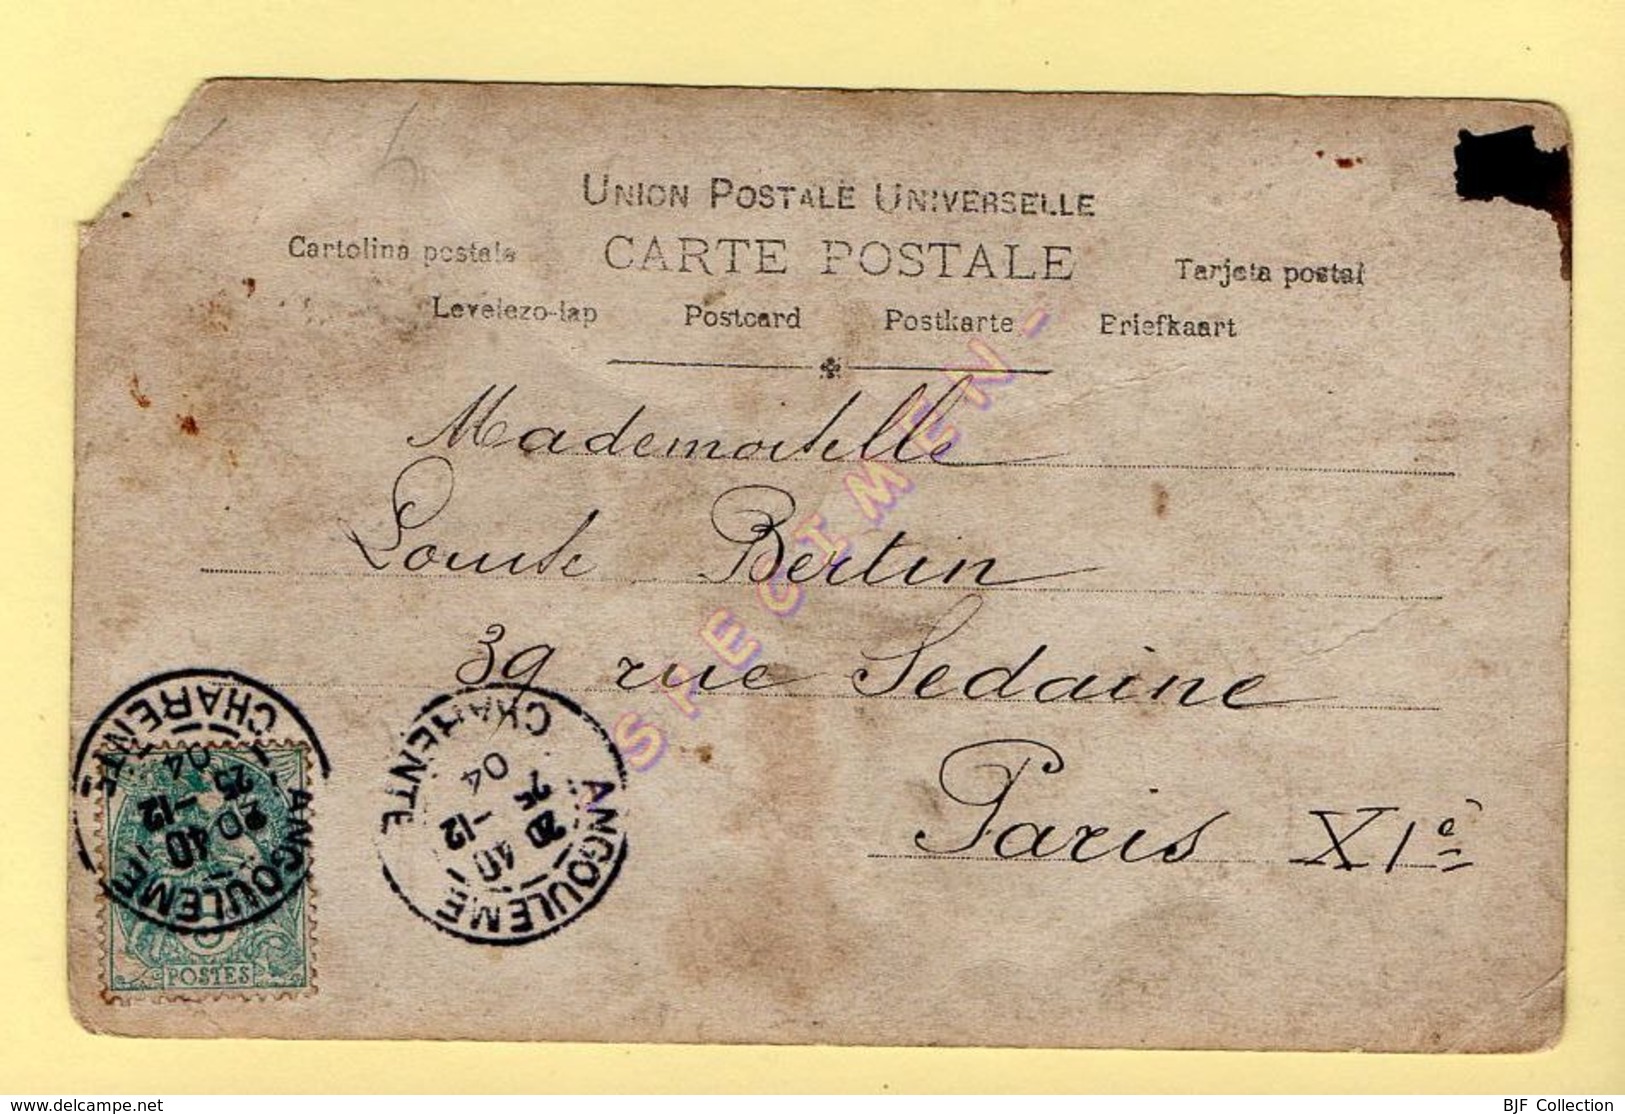 UNION POSTALE UNIVERSELLE
CARTE POSTALE
Cartolina postale
Tarjeta postal
Levelezo-lap Postcard Postkarte Briefkaart
SPECIMEN-
Mademoiselle
Louise Bertin
39 rue Sedaine
Paris XIe
ANGOULEME
CHARENTE
20 40
25 -12
04
POSTES
ANGOULEME
CHARENTE
20 40
25 -12
04
www.delcampe.net
BJF Collection